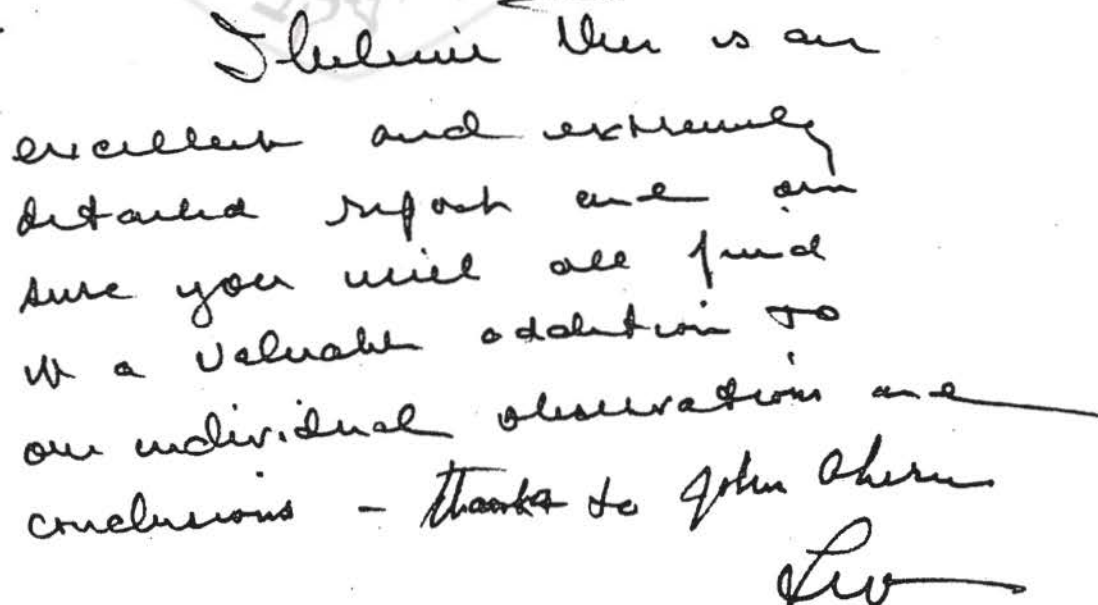 I believe this is an
excellent and extremely
detailed report and am
sure you will all find
it a valuable addition to
our individual observations and
conclusions - thanks to John Ahern